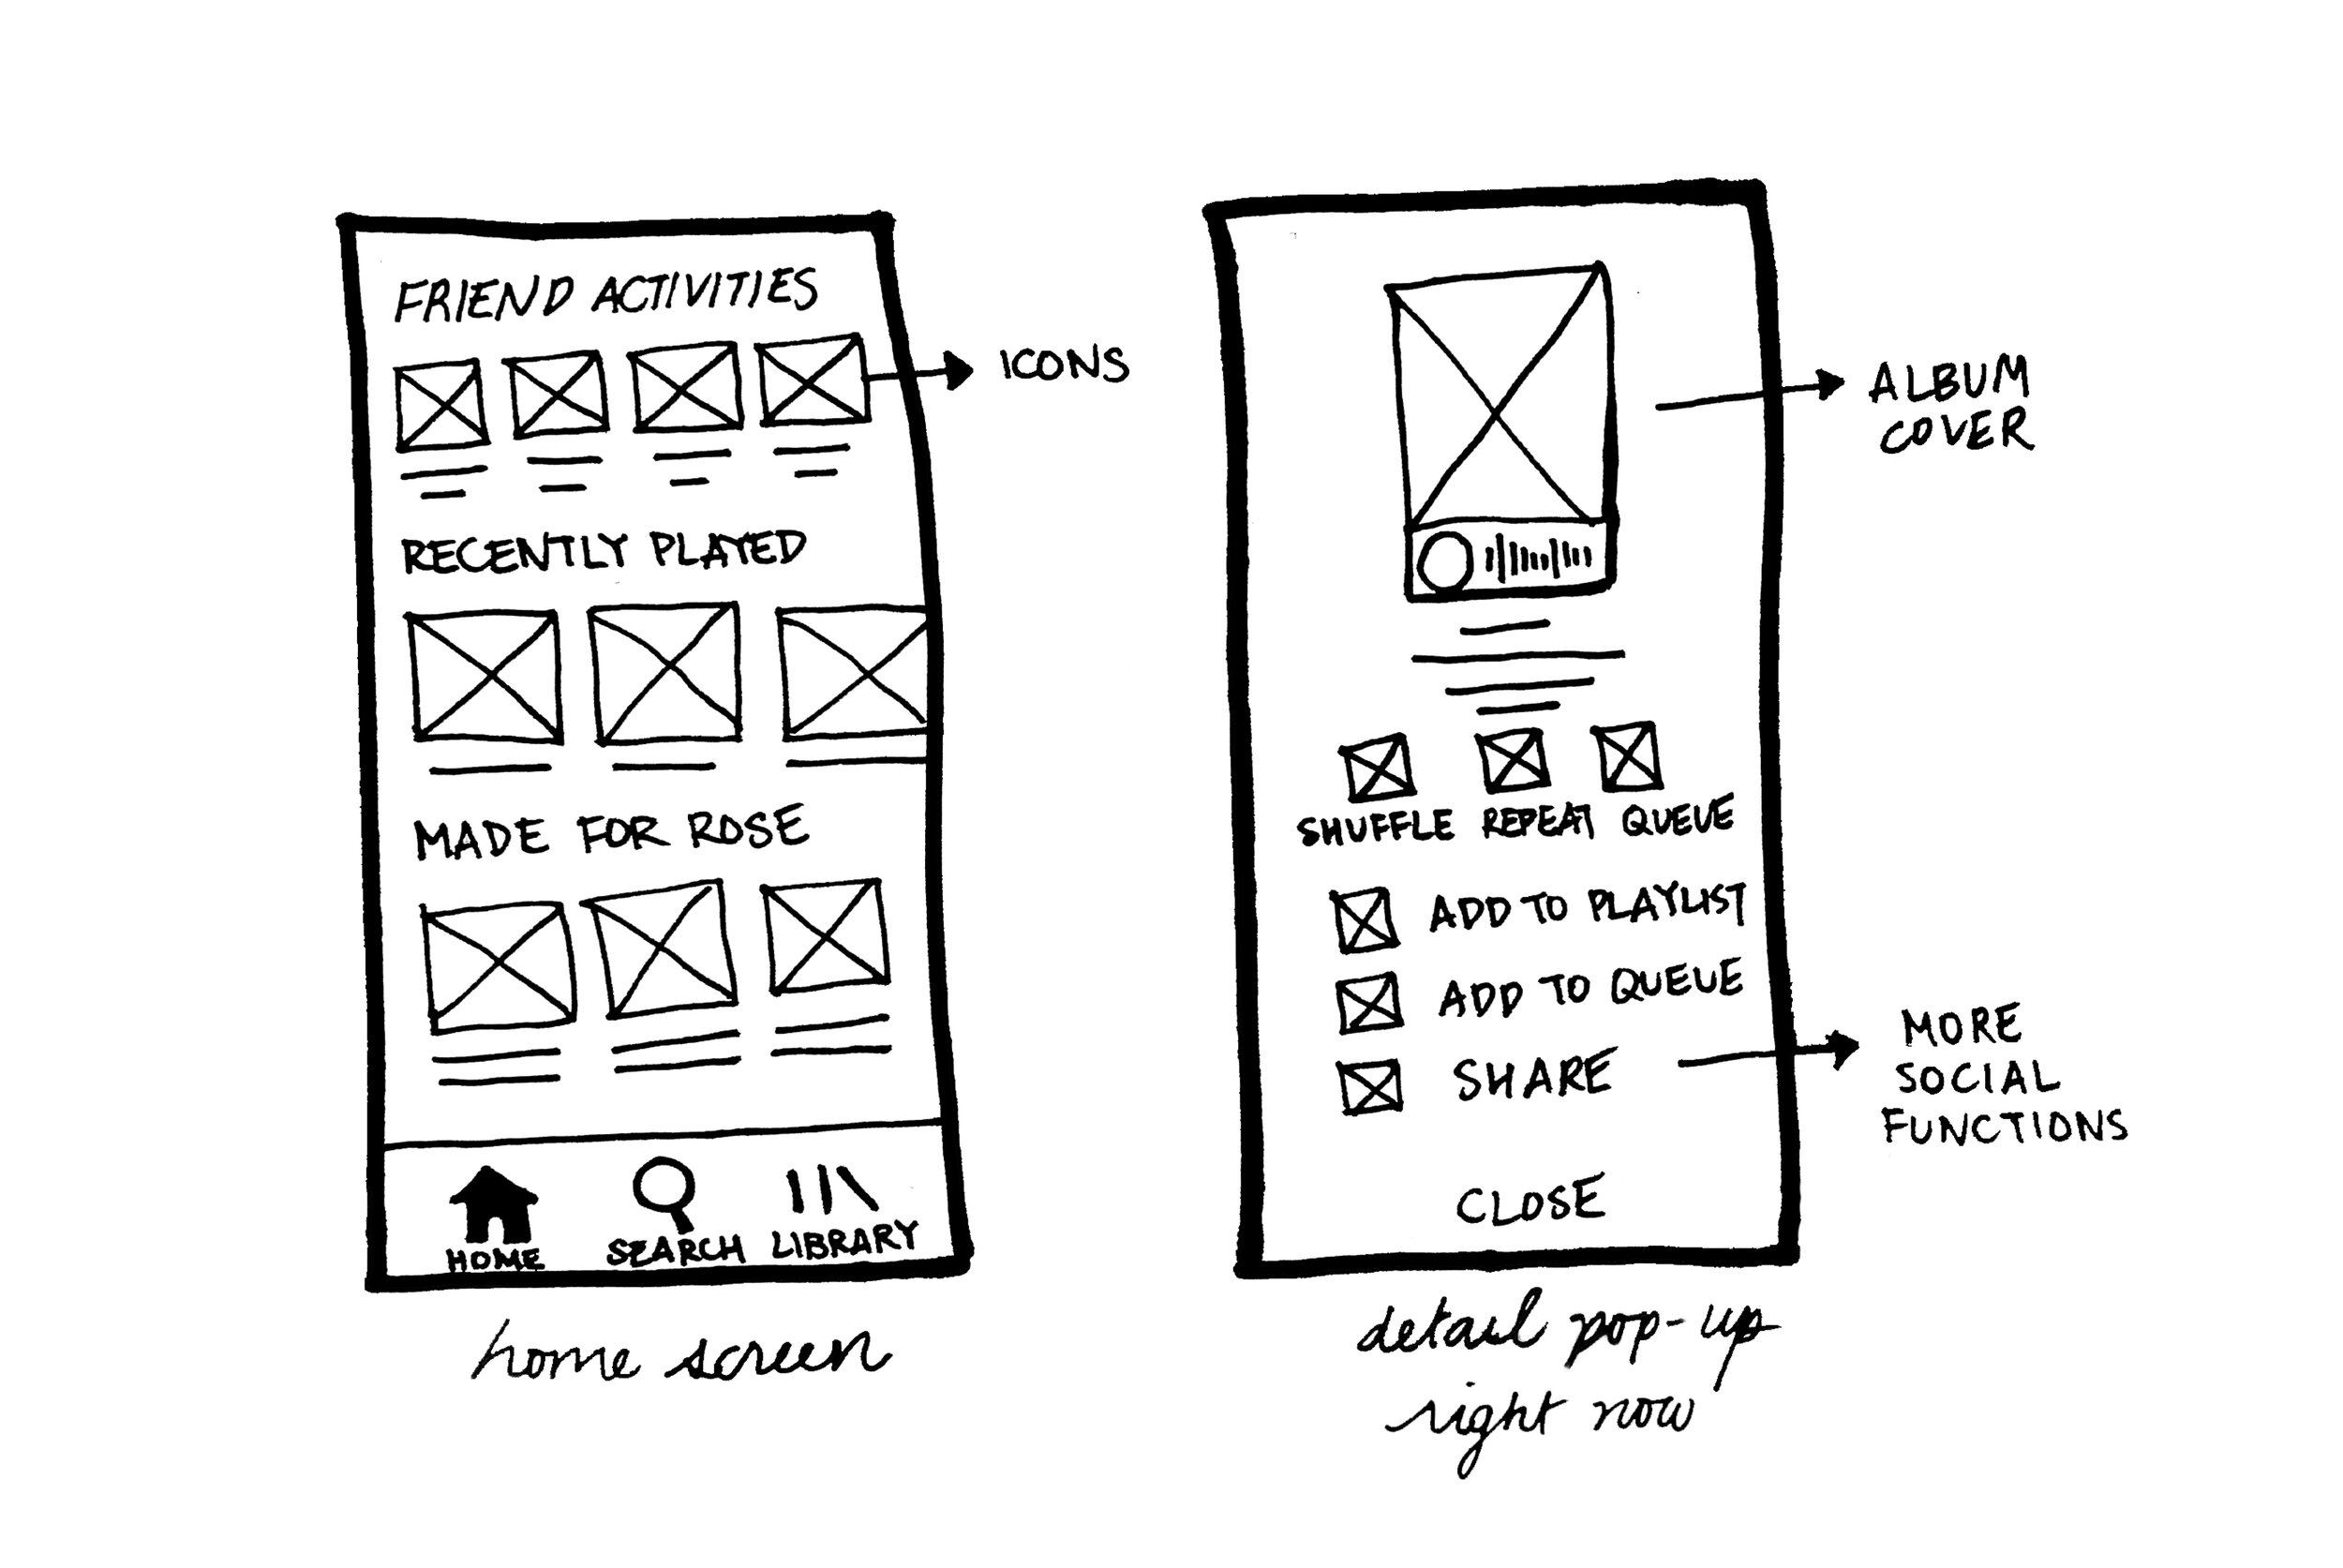 FRIEND ACTIVITIES
ICONS
RECENTLY PLAYED
MADE FOR ROSE
HOME SEARCH LIBRARY
home screen
ALBUM
COVER
SHUFFLE REPEAT QUEUE
ADD TO PLAYLIST
ADD TO QUEUE
SHARE
MORE
SOCIAL
FUNCTIONS
CLOSE
detail pop-up
right now